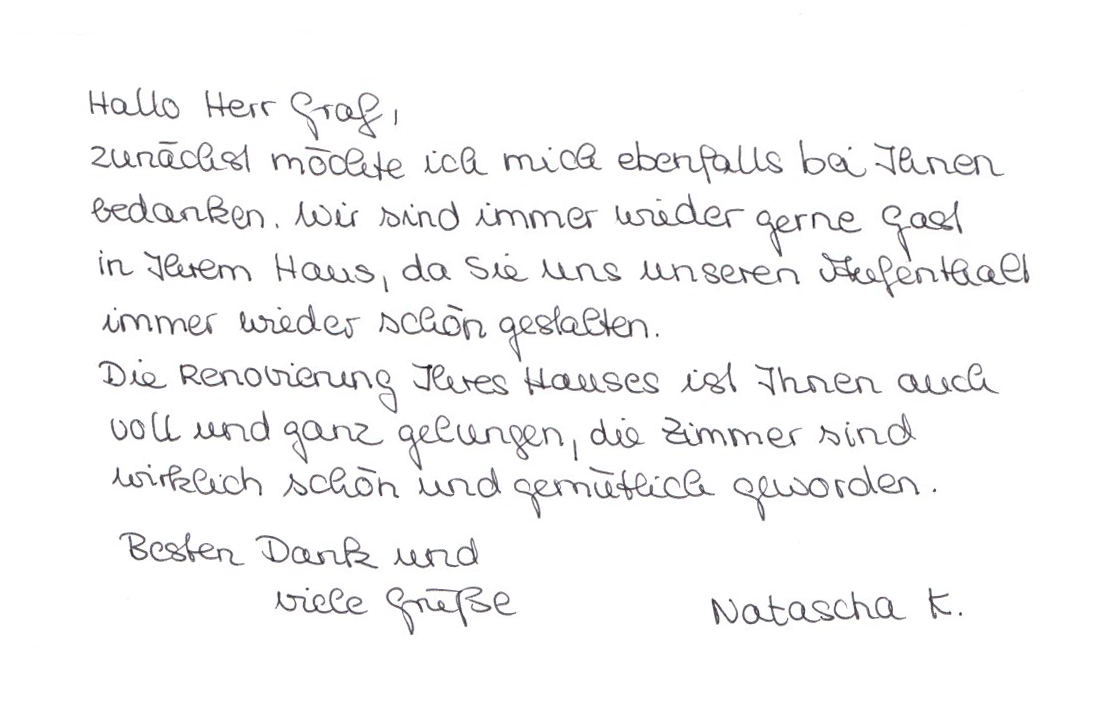 Hallo Herr Graf,
zunächst möchte ich mich ebenfalls bei Ihnen
bedanken. Wir sind immer wieder gerne Gast
in Ihrem Haus, da Sie uns unseren Aufenthalt
immer wieder schön gestalten.
Die Renovierung Ihres Hauses ist Ihnen auch
voll und ganz gelungen, die Zimmer sind
wirklich schön und gemütlich geworden.
Besten Dank und
viele Grüße
Natascha K.